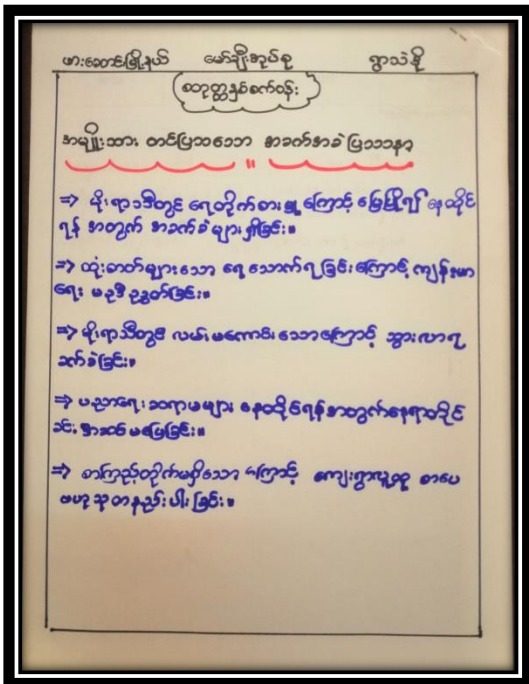 ဖားဆောင်းမြို့နယ် မော်ချီးအုပ်စု ရွာသဲနို
စတုတ္ထနှစ်စက်ဝန်း
အမျိုးသား တင်ပြသသော အခက်အခဲ ပြဿနာ
⇒ မိုးရာသီတွင် ရေတိုက်စားမှု ကြောင့် မြေပြို၍ နေထိုင်
ရန် အတွက် အခက်ခဲများ ရှိခြင်း။
⇒ ထုံးဓာတ်များသော ရေ သောက်ရခြင်းကြောင့် ကျန်းမာ
ရေး မညီညွတ်ခြင်း။
⇒ မိုးရာသီတွင် လမ်းမကောင်းသောကြောင့် သွားလာရ
ခက်ခဲခြင်း။
⇒ ပညာရေး ဆရာမများ နေထိုင်ရန်အတွက်နေရာထိုင်
ခင်း အဆင်မပြေခြင်း။
⇒ စာကြည့်တိုက်မရှိသော ကြောင့် ကျေးရွာလူထု စာပေ
ဗဟုသုတနည်းပါးခြင်း။